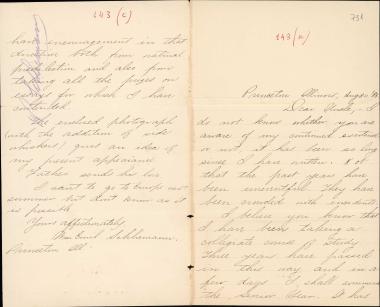 731
143 (a)
Princeton Illinois, Aug
Dear Uncle: I
do not know whether you are
aware of my continued existence
or not it has been so long
since I have written. Not
that the past years have
been uneventful they have
been crowded with
I believe you know that
I have been taking a
collegiate course of study
three years have passed
in this way and in a
few days I shall commence
the Senior Year. It has
143 (c)
have encouragement in that
direction both from natural
predilection and also from
taking all the prizes on
essays for which I have
contended.
The enclosed photograph
(with the addition of side
whiskers) gives an idea of
my present appearance
Father sends his love
I want to go to Europe next
summer but dont know as it
is possible
Yours affectionately
Wm Emil Schliemann.
Princeton Ill.